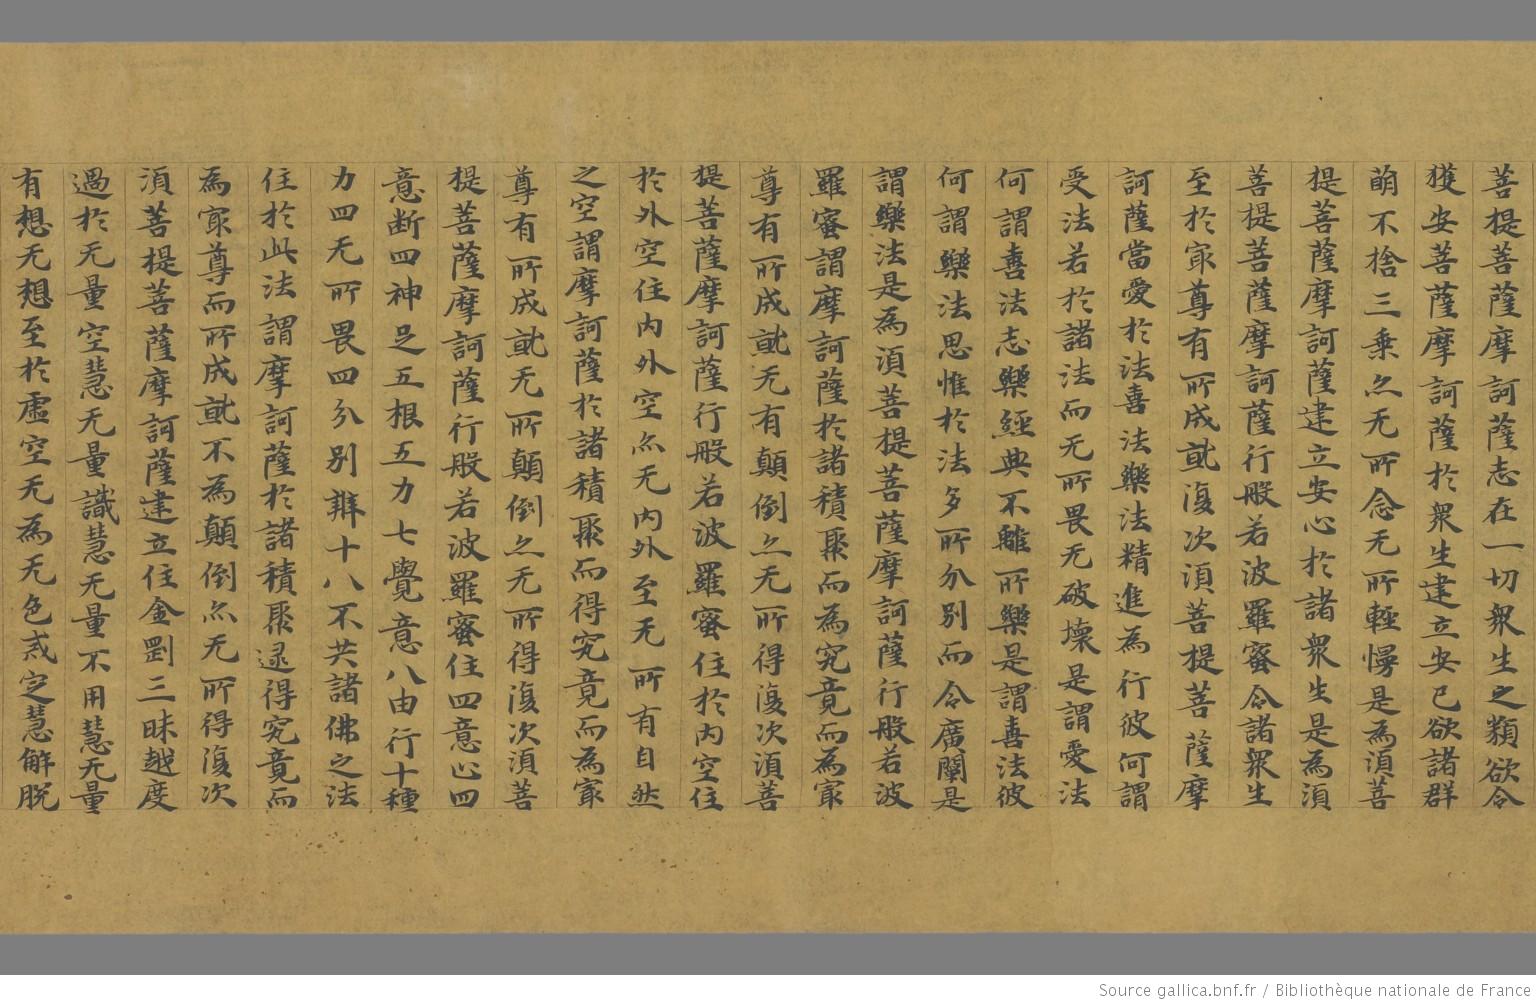 菩提菩薩摩訶薩志在一切衆生之類欲令
獲安菩薩摩訶薩於衆生建立安已欲諸群
萌不捨三乗亦无所念无所輕慢是為湏菩
提菩薩摩訶薩建立安心於諸衆生是為湏
菩提菩薩摩訶薩行般若波羅蜜令諸衆生
至於㝡尊有所成就復次湏菩提菩薩摩
訶薩當愛於法喜法樂法精進為行彼何謂
受法若於諸法而无所畏无破壞是謂愛法
何謂喜法志樂經典不離所樂是謂喜法彼
何謂樂法思惟於法多所分別而令廣闡是
謂樂法是為湏菩提菩薩摩訶薩行般若波
羅蜜謂摩訶薩於諸積聚而為究竟而為㝡
尊有所成就无有顛倒亦无所得復次湏菩
提菩薩摩訶薩行般若波羅蜜住於内空住
於外空住内外空亦无内外至无所有自然
之空謂摩訶薩於諸積聚而得究竟而為㝡
尊有所成就无所顛倒亦无所得復次湏菩
提菩薩摩訶薩行般若波羅蜜住四意止四
意断四神足五根五力七覺意八由行十種
力四无所畏四分別辯十八不共諸佛之法
住於此法謂摩訶薩於諸積聚逮得究竟而
為㝡尊而所成就不為顛倒亦无所得復次
湏菩提菩薩摩訶薩建立住金剛三昧越度
過於无量空慧无量識慧无量不用慧无量
有想无想至於虚空无為无色戒定慧解脱
Source gallica.bnf.fr / Bibliothèque nationale de France